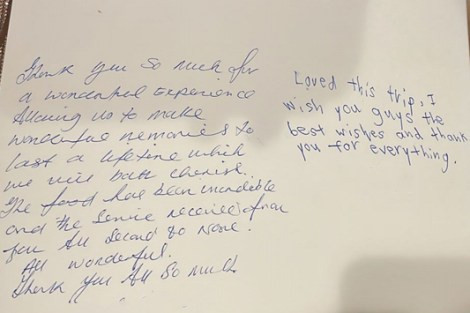 Thank you so much for
a wonderful experience
Allowing us to make
wonderful memories to
last a lifetime which
we will both cherish.
The food has been incredible
and the service received from
you All second to None.
All wonderful.
Thank you All so much
Loved this trip, I
wish you guys the
best wishes and thank
you for everything.